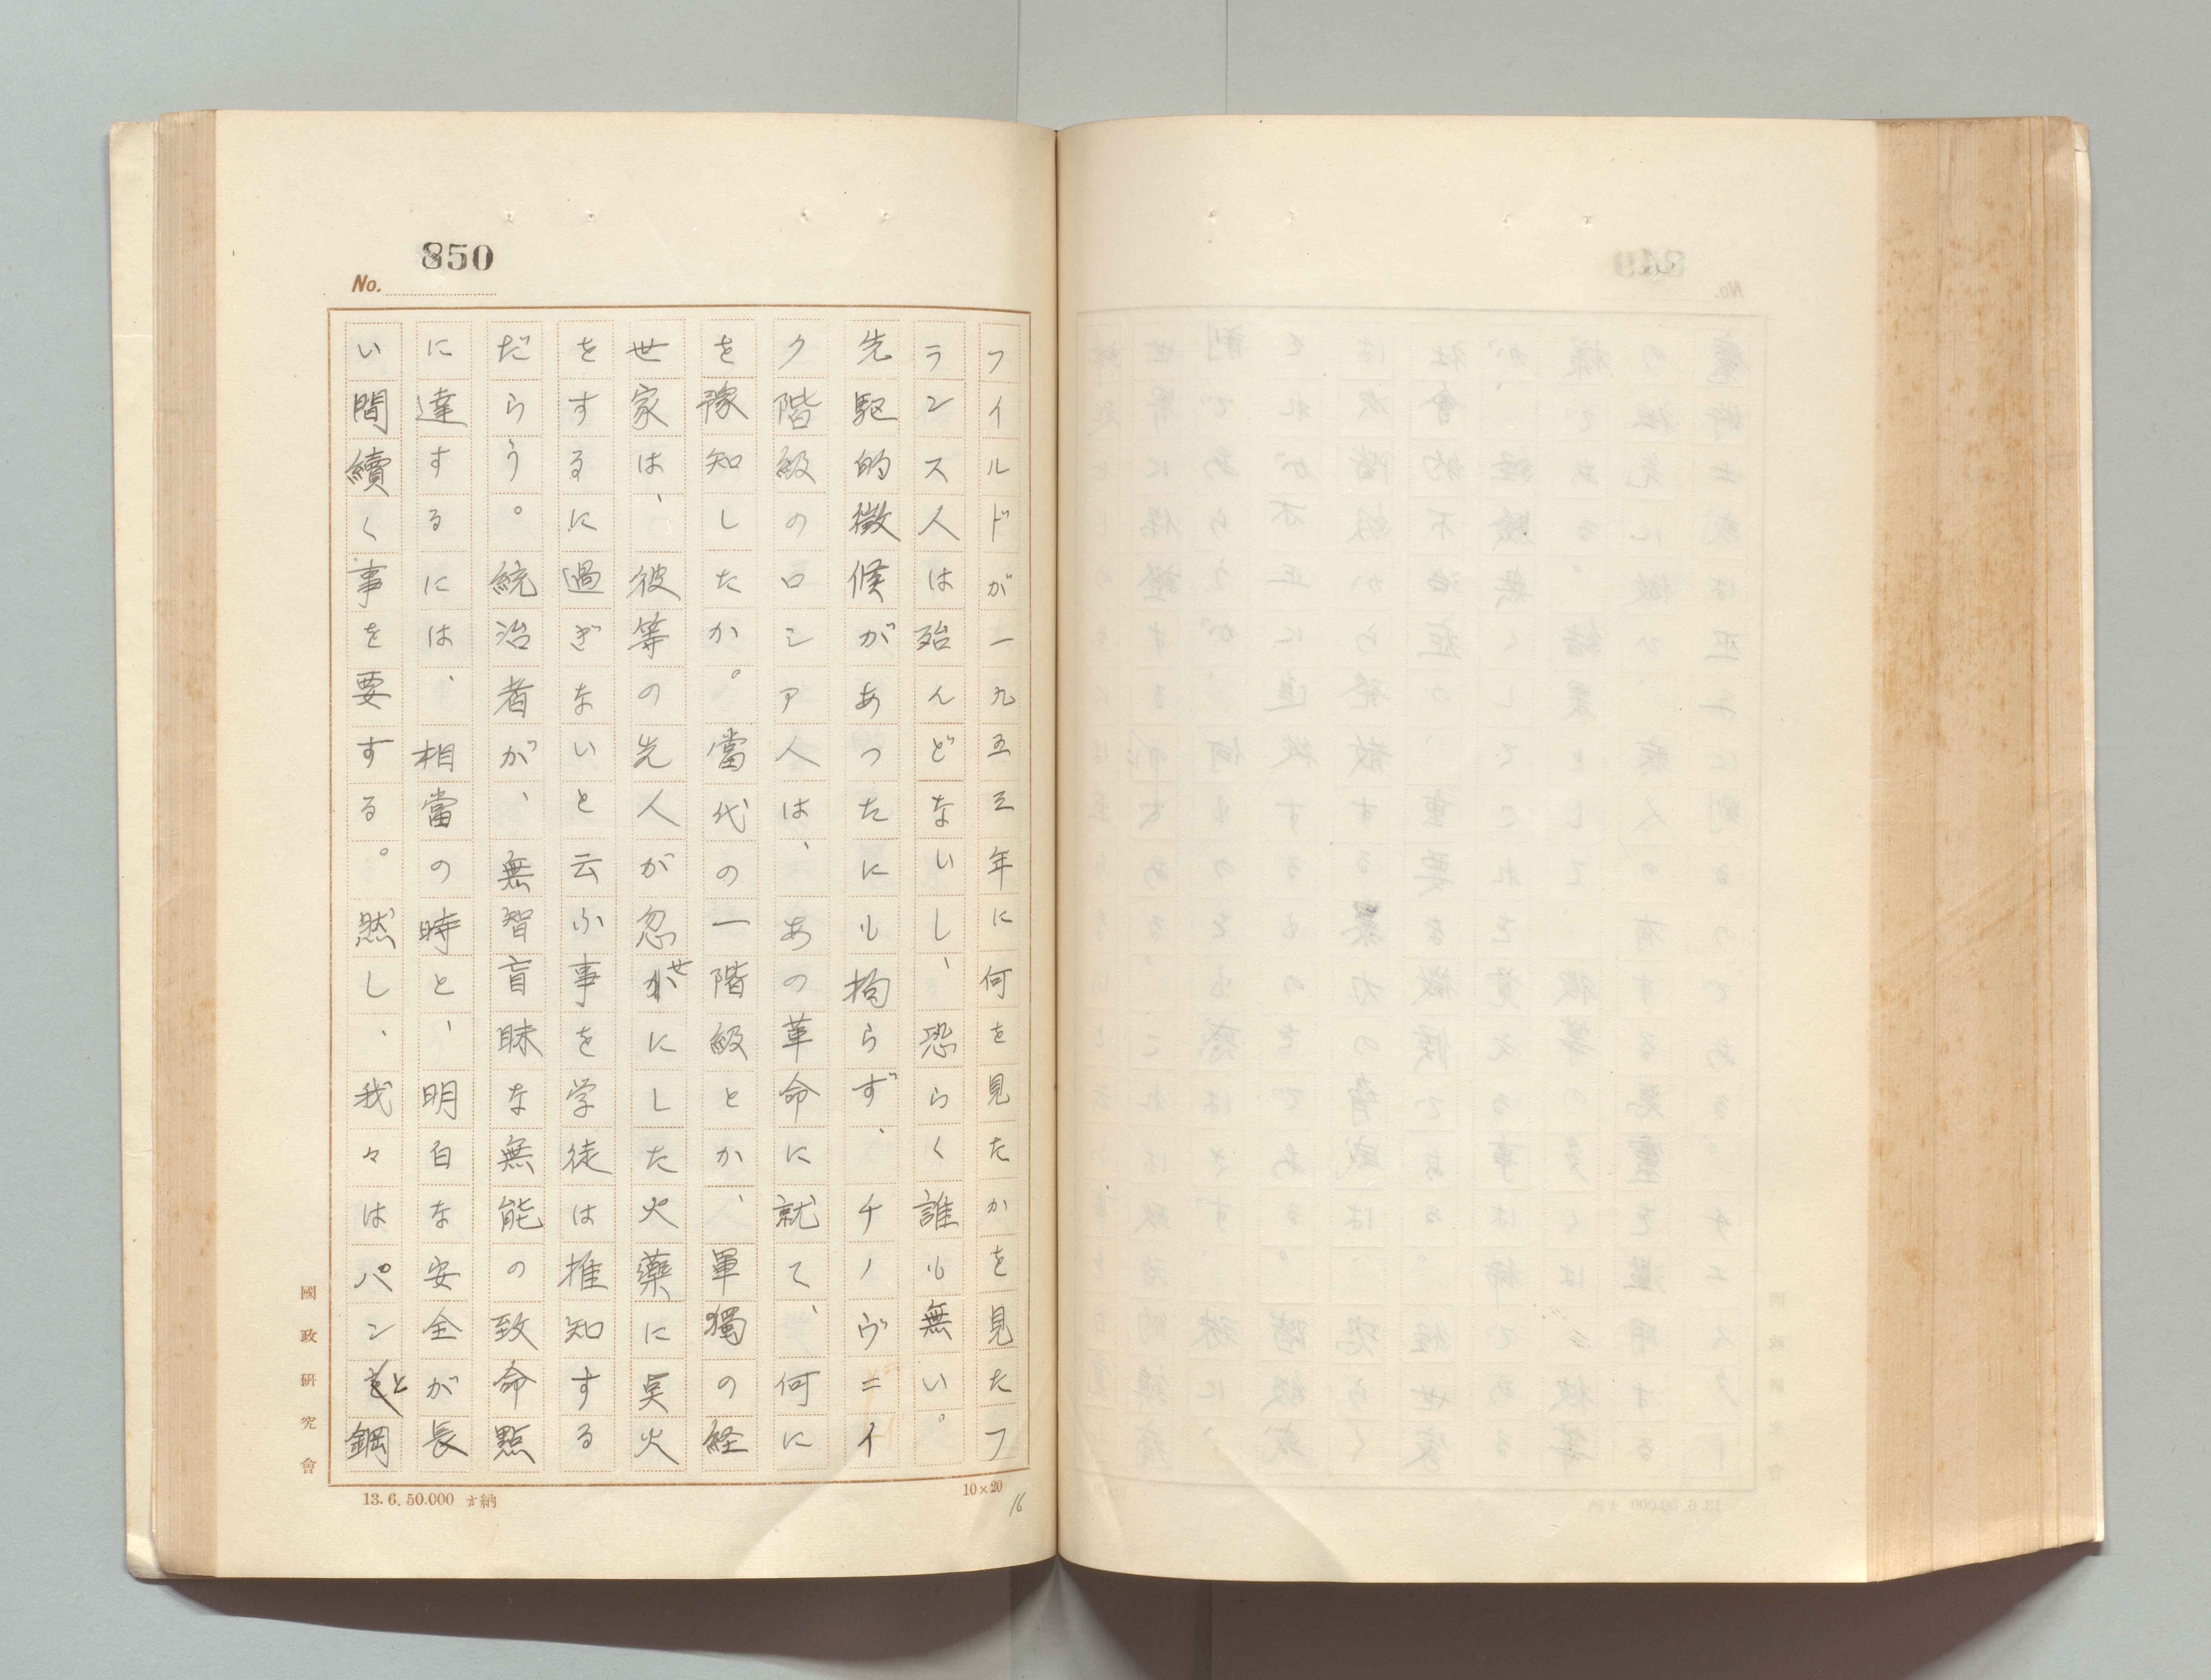 850
No.
フイルドが一九五三年に何を見たかを見たフ
ランス人は殆んどないし、恐らく誰も無い。
先駆的徴候があつたにも拘らず、チノヴニイ
ク階級のロシア人は、あの革命に就て、何に
を豫知したか。當代の一階級とか、單獨の経
世家は、彼等の先人が忽せにした火藥に点火
をするに過ぎないと云ふ事を学徒は推知する
だらう。統治者が、無智盲昧な無能の致命點
に達するには、相當の時と、明白な安全が長
い間續く事を要する。然し、我々はパンと鋼
國政研究會
13.6.50.000 ナ納
10×20
16